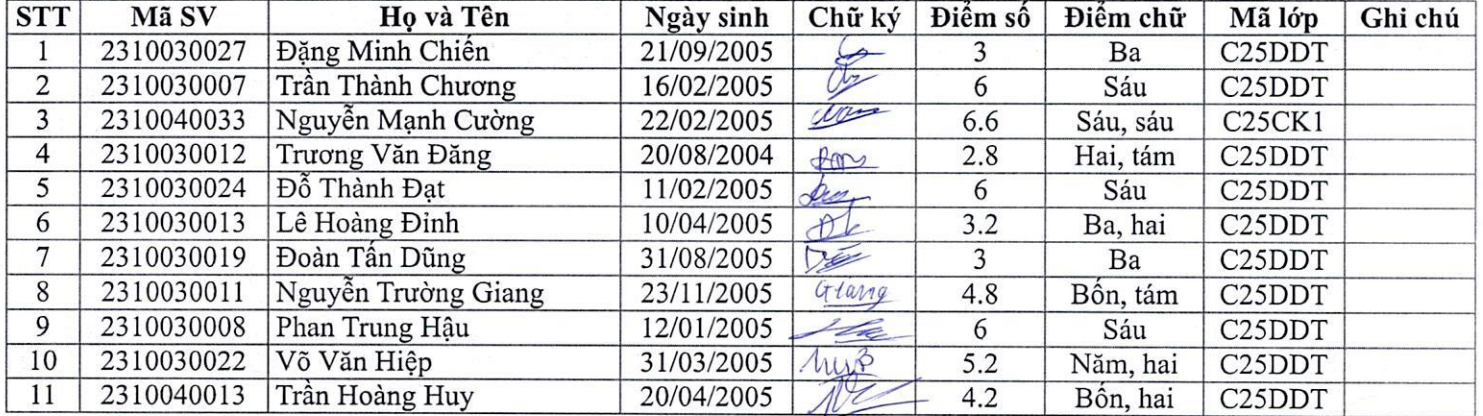 STT Mã SV Họ và Tên Ngày sinh Chữ ký Điểm số Điểm chữ Mã lớp Ghi chú
1 2310030027 Đặng Minh Chiến 21/09/2005 3 Ba C25DDT
2 2310030007 Trần Thành Chương 16/02/2005 6 Sáu C25DDT
3 2310040033 Nguyễn Mạnh Cường 22/02/2005 6.6 Sáu, sáu C25CK1
4 2310030012 Trương Văn Đăng 20/08/2004 2.8 Hai, tám C25DDT
5 2310030024 Đỗ Thành Đạt 11/02/2005 6 Sáu C25DDT
6 2310030013 Lê Hoàng Đỉnh 10/04/2005 3.2 Ba, hai C25DDT
7 2310030019 Đoàn Tấn Dũng 31/08/2005 3 Ba C25DDT
8 2310030011 Nguyễn Trường Giang 23/11/2005 Giang 4.8 Bốn, tám C25DDT
9 2310030008 Phan Trung Hậu 12/01/2005 6 Sáu C25DDT
10 2310030022 Võ Văn Hiệp 31/03/2005 5.2 Năm, hai C25DDT
11 2310040013 Trần Hoàng Huy 20/04/2005 4.2 Bốn, hai C25DDT